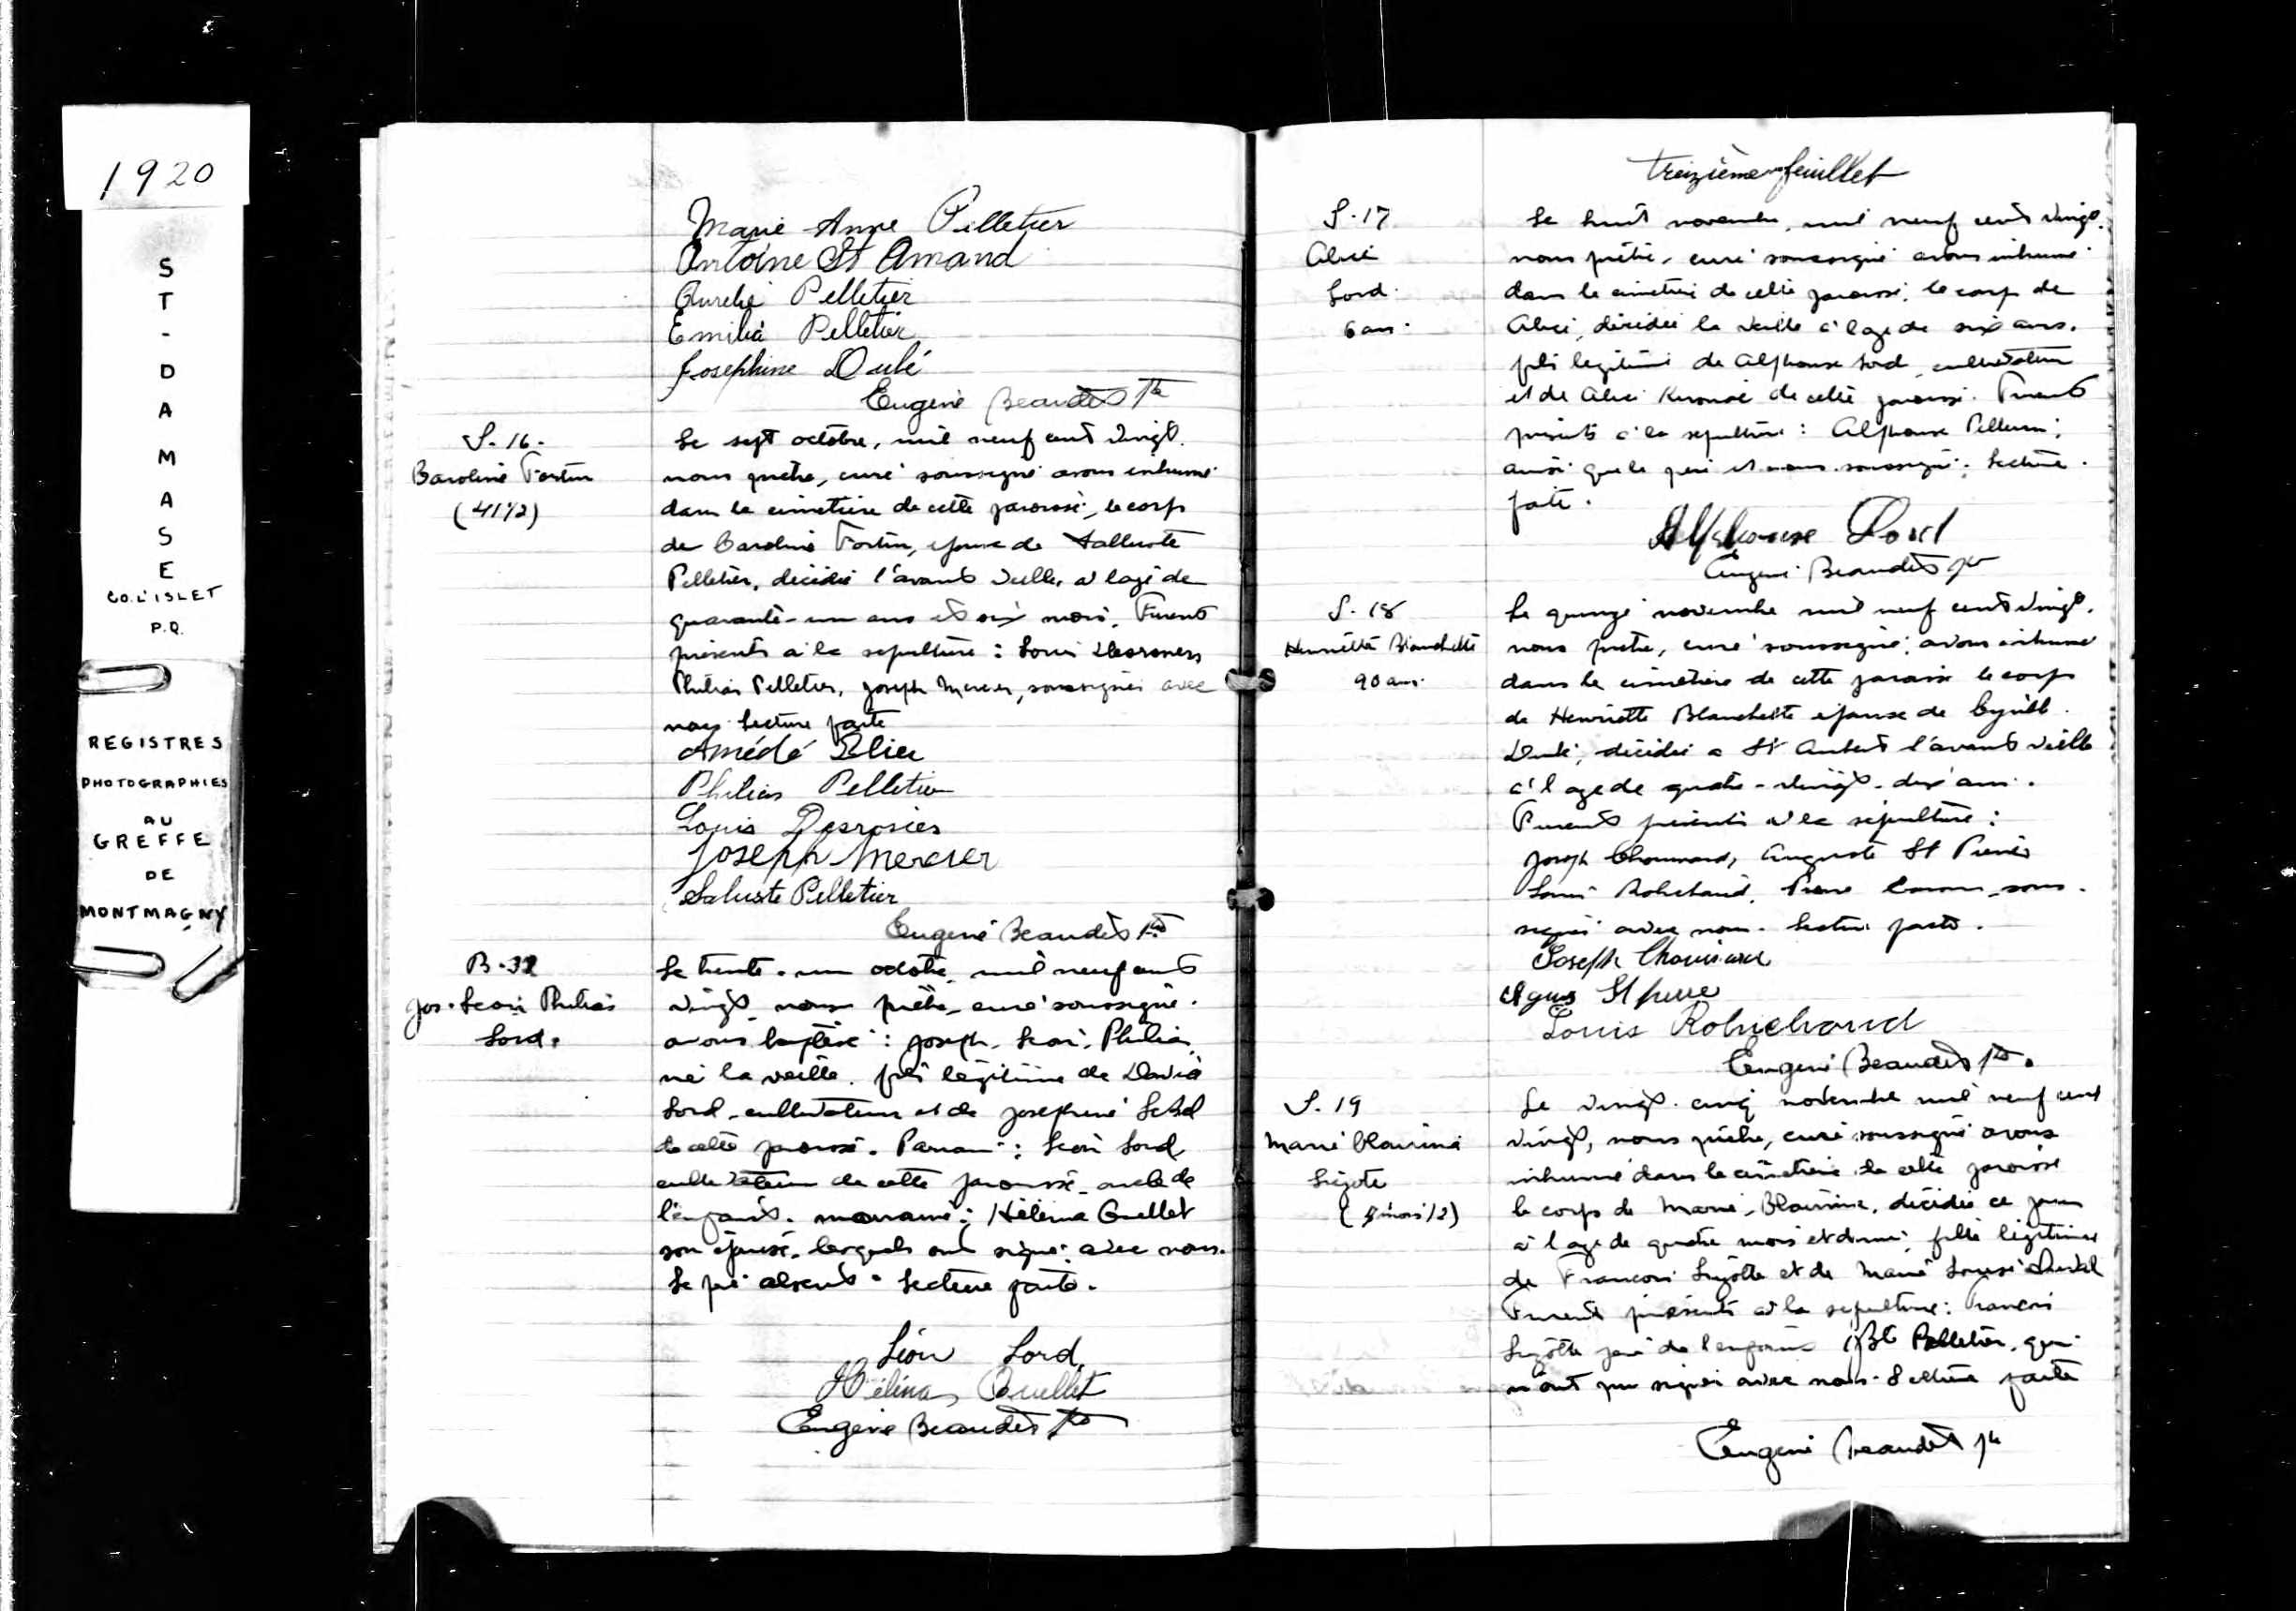 1920
ST-DAMASE
CO. L'ISLET
P.Q.
REGISTRES
PHOTOGRAPHIES
AU
GREFFE
DE
MONTMAGNY
Marie Anne Pelletier
Antoine St Amand
Aurelie Pelletier
Emilia Pelletier
Josephine Dubé
Eugène Beaudet Ptre
S. 16.
Caroline Fortin
(41 1/2)
Le sept octobre, mil neuf cent vingt.
nous prêtre, curé soussigné avons inhumé
dans le cimetière de cette paroisse, le corps
de Caroline Fortin, épouse de Salluste
Pelletier, décédée l'avant veille, à l'age de
quarante-un ans et six mois. Furent
présents à la sépulture : Louis Desrosiers
Philias Pelletier, Joseph Mercier, soussignés avec
nous. Lecture faite
Amédé
Philias Pelletier
Louis Desrosiers
Joseph Mercier
Saluste Pelletier
Eugène Beaudet Ptre
B. 32
Jos. Léon Philias
Lord.
Le trente-un octobre mil neuf cent
vingt nous prêtre, curé soussigné.
avons baptisé : Joseph, Léon, Philias,
né la veille. fils légitime de David
Lord, cultivateur et de Josephine
de cette paroisse. Parrain : Léon Lord
cultivateur de cette paroisse, oncle de
l'enfant. marraine : Hélèna Ouellet
son épouse, lesquels ont signé avec nous.
Le père absent. Lecture faite.
Léon Lord.
Hélèna Ouellet
Eugène Beaudet Ptre
Treizième feuillet
S. 17
Alice
Lord.
6 ans.
Le huit novembre, mil neuf cent vingt.
nous prêtre, curé soussigné avons inhumé
dans le cimetière de cette paroisse, le corps de
Alice, décédée la veille à l'age de six ans.
légitime de Alphonse Lord, cultivateur
et de Alice de cette paroisse. Furent
présents à la sépulture : Alphonse
ainsi que le père et nous soussigné. Lecture
faite.
Alphonse Lord
Eugène Beaudet ptre
S. 18
Henriette Blanchette
90 ans.
Le quinze novembre mil neuf cent vingt.
nous prêtre, curé soussigné, avons inhumé
dans le cimetière de cette paroisse le corps
de Henriette Blanchette épouse de Cyrille
Dubé, décédée a St Aubert l'avant veille
à l'age de quatre-vingt-dix ans.
Furent présents à la sépulture :
Joseph Chouinard, Auguste St Pierre
Louis Robichaud, Pierre Caron, sous-
signés avec nous. Lecture faite.
Joseph Chouinard
Agus St pierre
Louis Robichaud
Eugène Beaudet Ptre.
S. 19
Marie Blandina
Lizotte
(4 mois 1/2)
Le vingt-cinq novembre mil neuf cent
vingt, nous prêtre, curé soussigné avons
inhumé dans le cimetière de cette paroisse
le corps de Marie, décédée ce jour
à l'age de quatre mois et demi, fille légitime
de Francois Lizotte et de Marie Louise
Furent présents à la sépulture : Francois
Lizotte père de l'enfant J Bte Pelletier, qui
n'ont pu signer avec nous. Lecture faite
Eugène Beaudet ptre